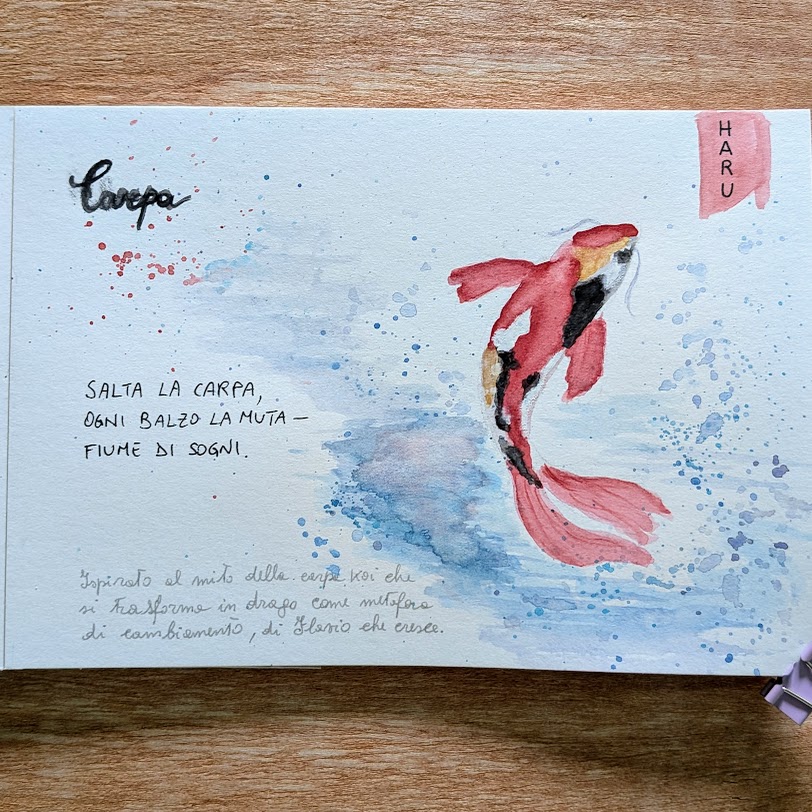 Carpa
HARU
SALTA LA CARPA,
OGNI BALZO LA MUTA –
FIUME DI SOGNI.
Ispirato al mito della carpa koi che
si trasforma in drago come metafora
di cambiamento, di Flavio che cresce.